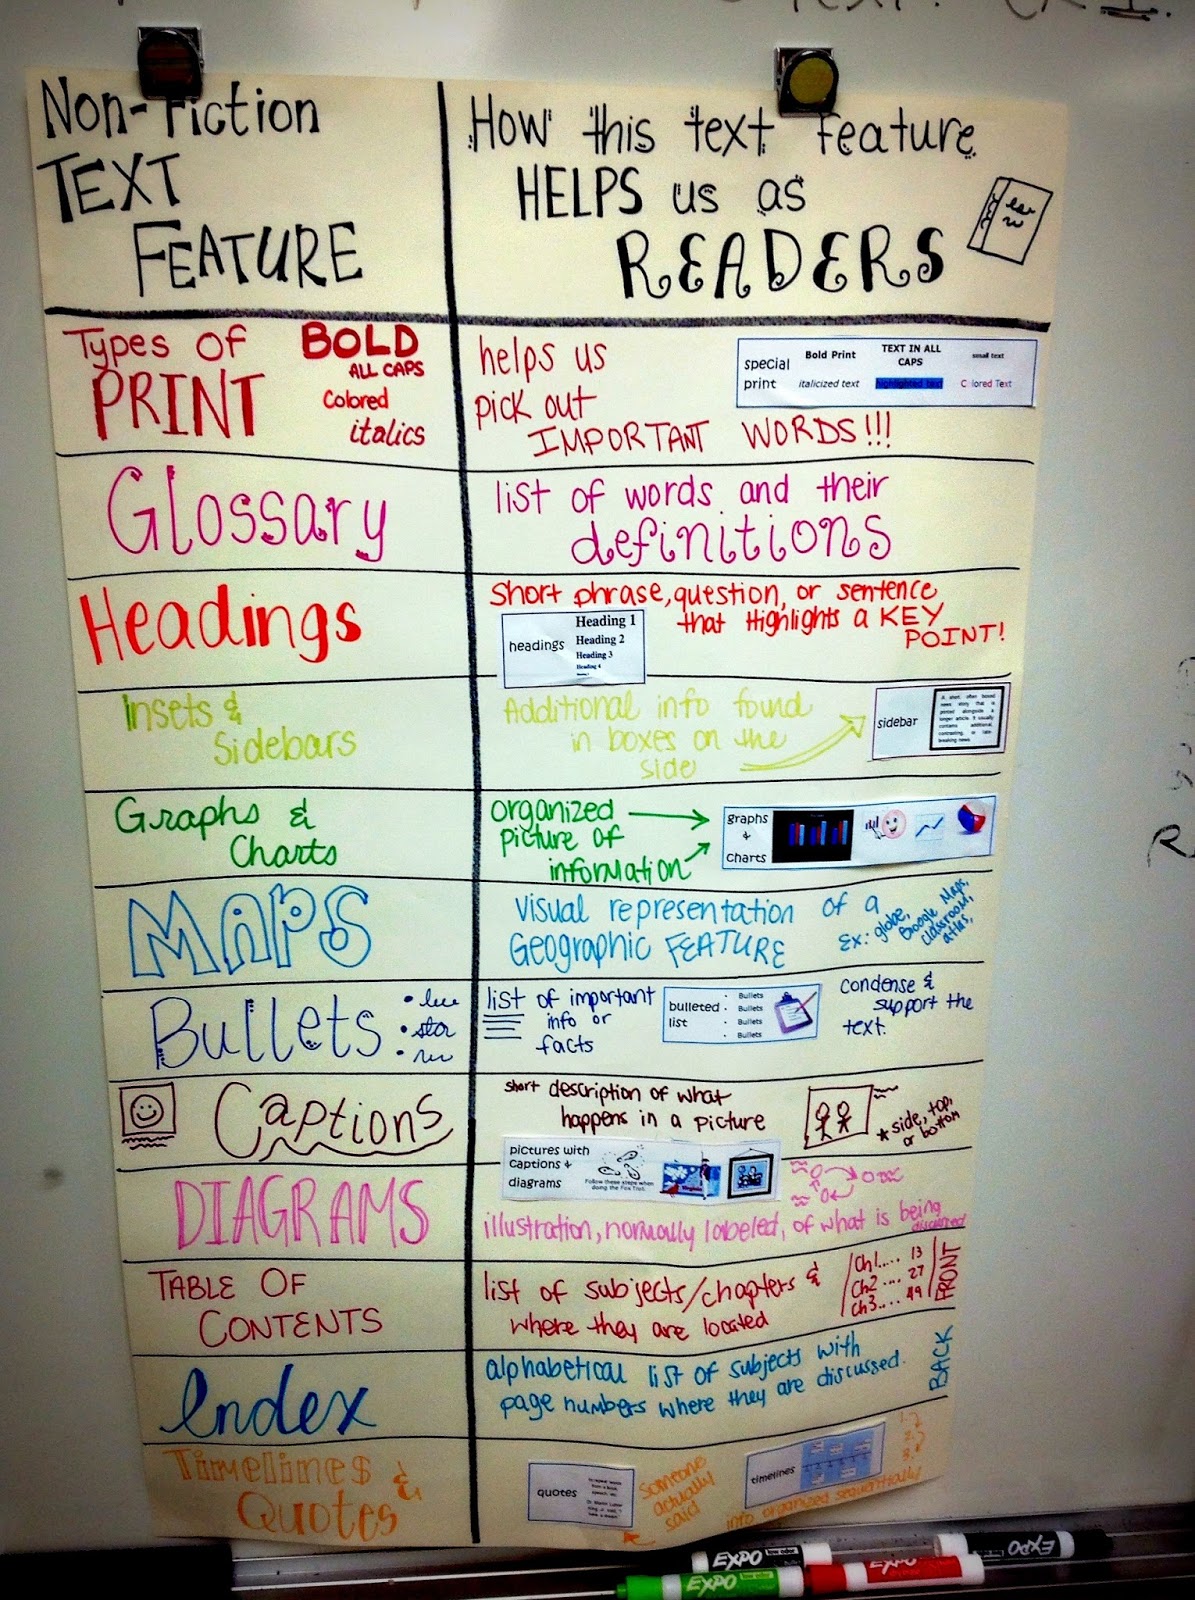 Non-Fiction
TEXT
FEATURE
How this text feature
HELPS us as
READERS
Types of
PRINT
BOLD
ALL CAPS
Colored
italics
helps us
pick out
IMPORTANT WORDS!!!
special
print
Bold Print
TEXT IN ALL
CAPS
small text
italicized text
highlighted text
Colored Text
Glossary
list of words and their
definitions
Headings
short phrase, question, or sentence
that Highlights a KEY
POINT!
headings
Heading 1
Heading 2
Heading 3
Heading 4
Insets &
Sidebars
Additional info found
in boxes on the
side
sidebar
A short, often boxed
news story that is
printed alongside a
longer article. It usually
contains additional,
contrasting, or late-
breaking news.
Graphs &
Charts
organized
picture of
information
graphs
+
charts
MAPS
visual representation of a
Geographic FEATURE
Ex: globe,
Google Maps,
classroom,
atlas,
Bullets
list of important
info or
facts
bulleted
list
• Bullets
• Bullets
• Bullets
• Bullets
condense &
support the
text.
Captions
short description of what
happens in a picture
* side, top,
or bottom
pictures with
captions &
diagrams
Follow these steps when
doing the Fox Trot.
DIAGRAMS
illustration, normally labeled, of what is being
TABLE OF
CONTENTS
list of subjects/chapters &
where they are located
Ch1.... 13
Ch2.... 27
Ch3.... 49
FRONT
Index
alphabetical list of subjects with
page numbers where they are discussed.
BACK
Timelines &
Quotes
quotes
someone
actually
said
timelines
1.
2.
3.
info organized sequentially
EXPO
low odor
EXPO
EXPO
EXPO